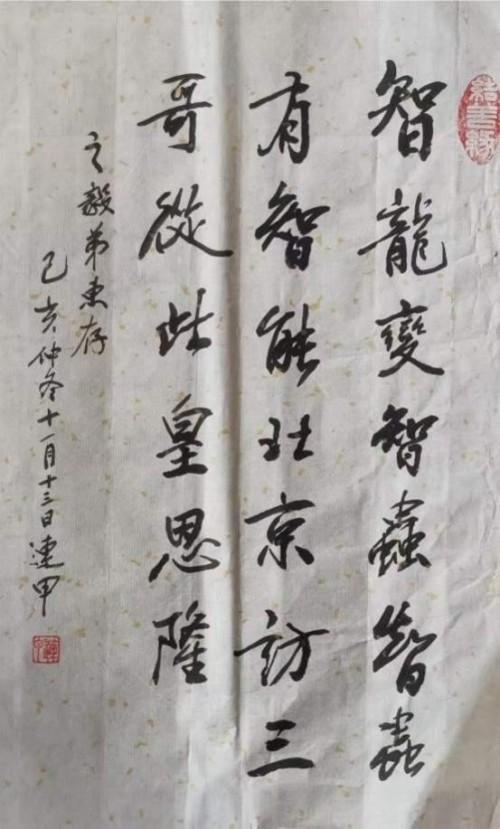 智龍變智蟲智蟲
有智能壯京訪三
哥從此皇恩隆
之毅弟惠存
己亥仲冬十一月十三日連甲